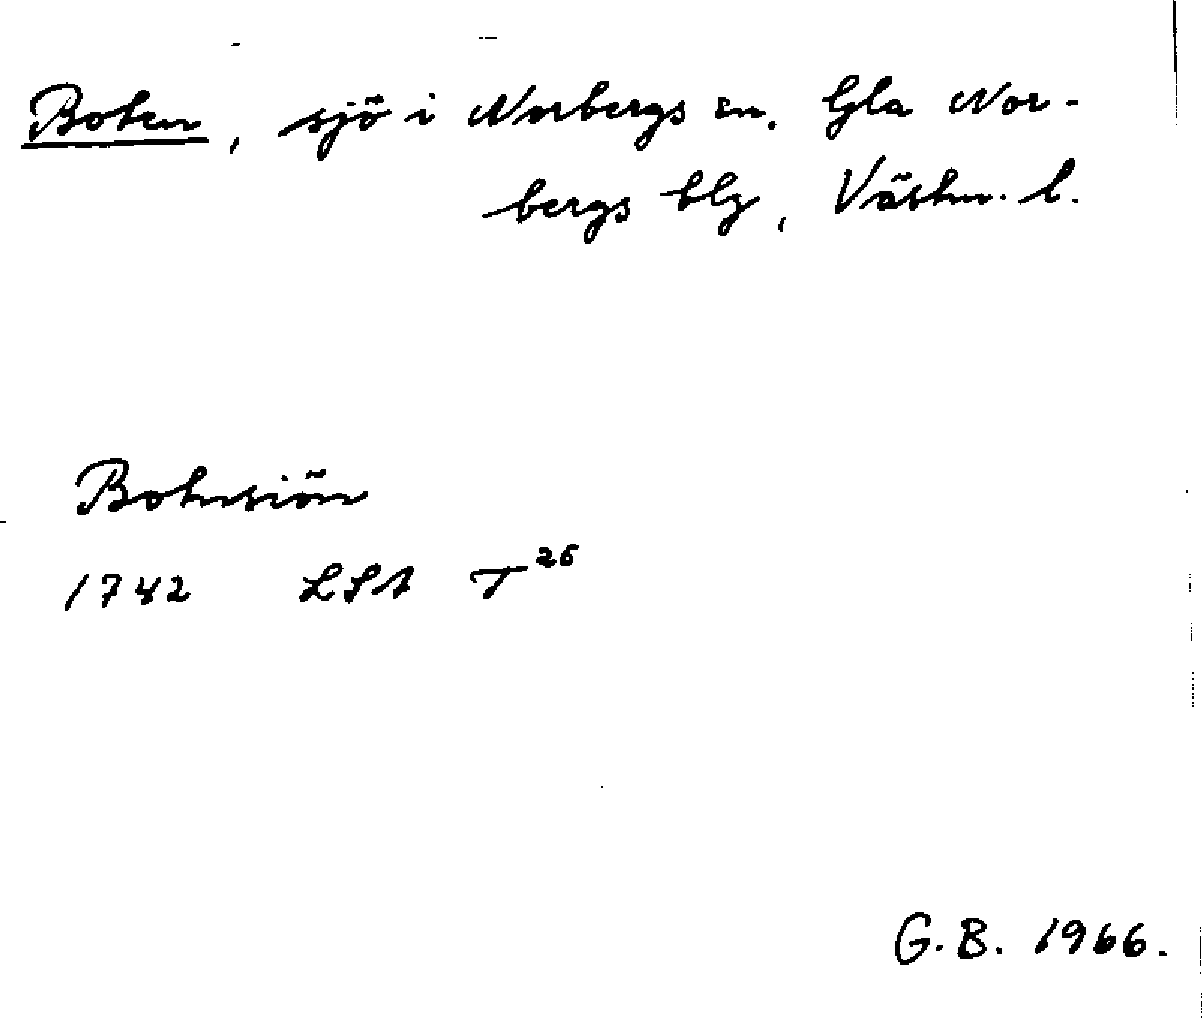 Boten, sjö i Norbergs sn. Gla Nor-
bergs blg, Västm. l.
Botnsiön
1742 LSA T26
G.B. 1966.